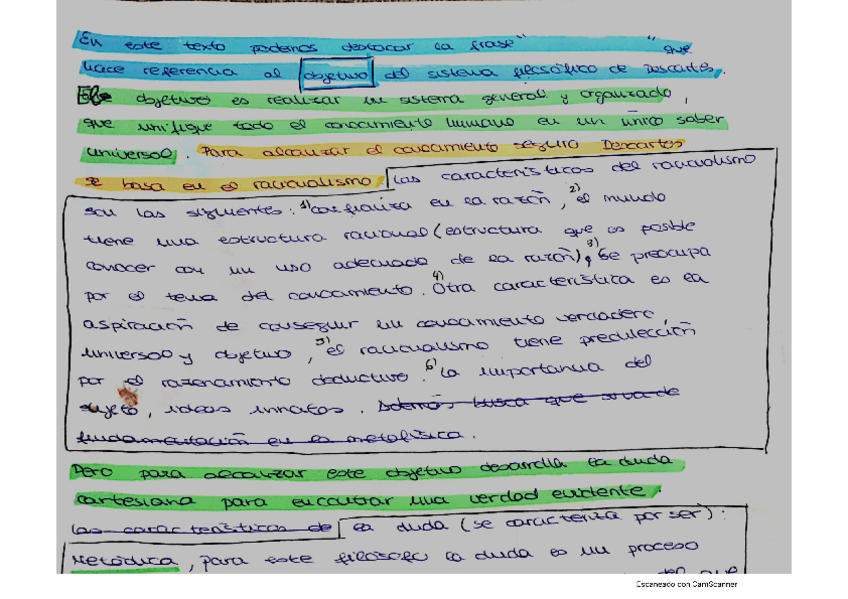 En este texto podemos destacar la frase " " que
hace referencia al objetivo del sistema filosófico de Descartes.
El objetivo es realizar un sistema general y organizado,
que unifique todo el conocimiento humano en un único saber
universal. Para alcanzar el conocimiento seguro Descartes
se basa en el racionalismo. Las características del racionalismo
son las siguientes: 1) confianza en la razón, 2) el mundo
tiene una estructura racional (estructura que es posible
conocer con un uso adecuado de la razón), 3) se preocupa
por el tema del conocimiento. 4) Otra característica es la
aspiración de conseguir un conocimiento verdadero,
universal y objetivo, 5) el racionalismo tiene predilección
por el razonamiento deductivo. 6) La importancia del
sujeto, ideas innatas. Además busca que sirva de
fundamentación en la metafísica.
Pero para alcanzar este objetivo desarrolla la duda
cartesiana para encontrar una verdad evidente.
las características de la duda (se caracteriza por ser):
Metódica, para este filósofo la duda es un proceso
que
Escaneado con CamScanner